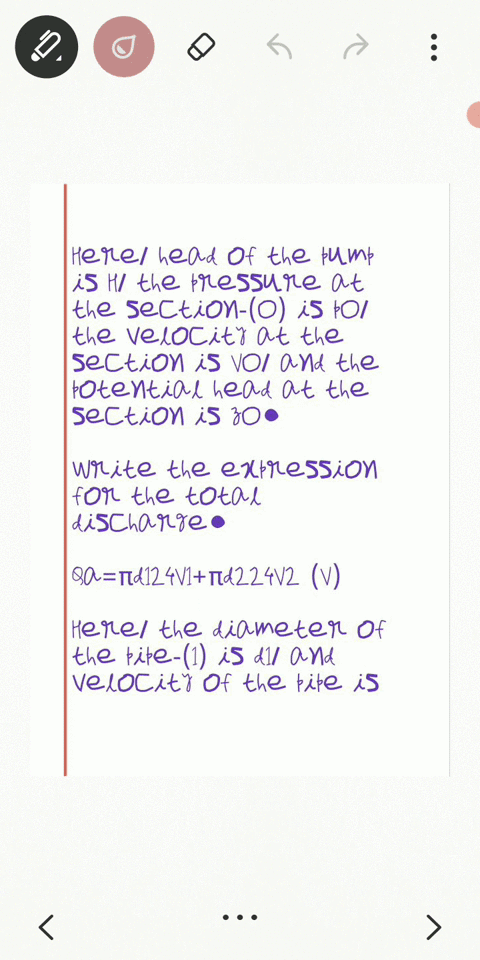 Here/ head of the pump
is H/ the pressure at
the section-(0) is p0/
the velocity at the
section is V0/ and the
potential head at the
section is z0●
Write the expression
for the total
discharge●
Qa=πd124V1+πd224V2 (V)
Here/ the diameter of
the pipe-(1) is d1/ and
velocity of the pipe is